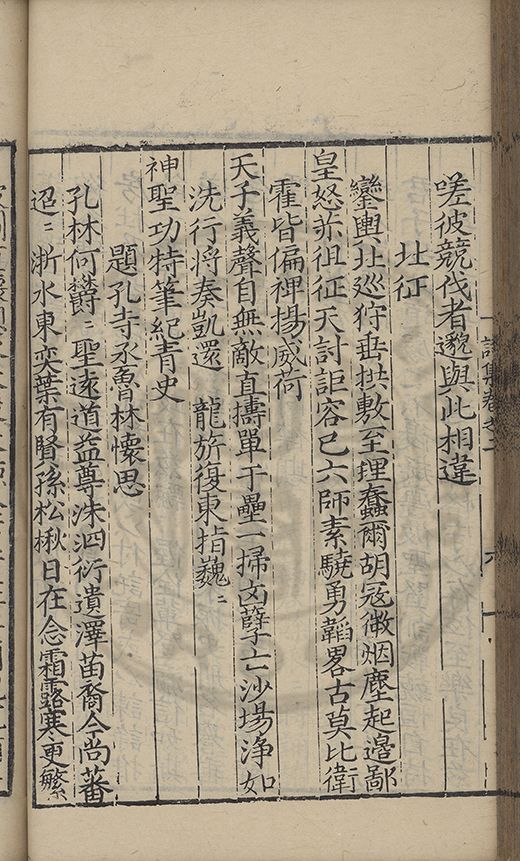 嗟彼競伐者邈與此相違
北征
鑾輿北巡狩垂拱敷至理蠢爾胡寇微烟塵起邊鄙
皇怒恭徂征天討詎容已六師素驍勇韜畧古莫比衛
霍皆偏裨揚威荷
天子義聲自無敵直擣單于壘一掃凶孽亡沙場净如
洗行將奏凱還　龍旂復東指巍〻
神聖功特筆紀青史
題孔寺丞魯林懷思
孔林何欝〻聖逺道益尊洙泗衍遺澤苗裔今尚蕃
迢〻浙水東奕葉有賢孫松楸日在念霜露寒更繁
詩集卷之二
六